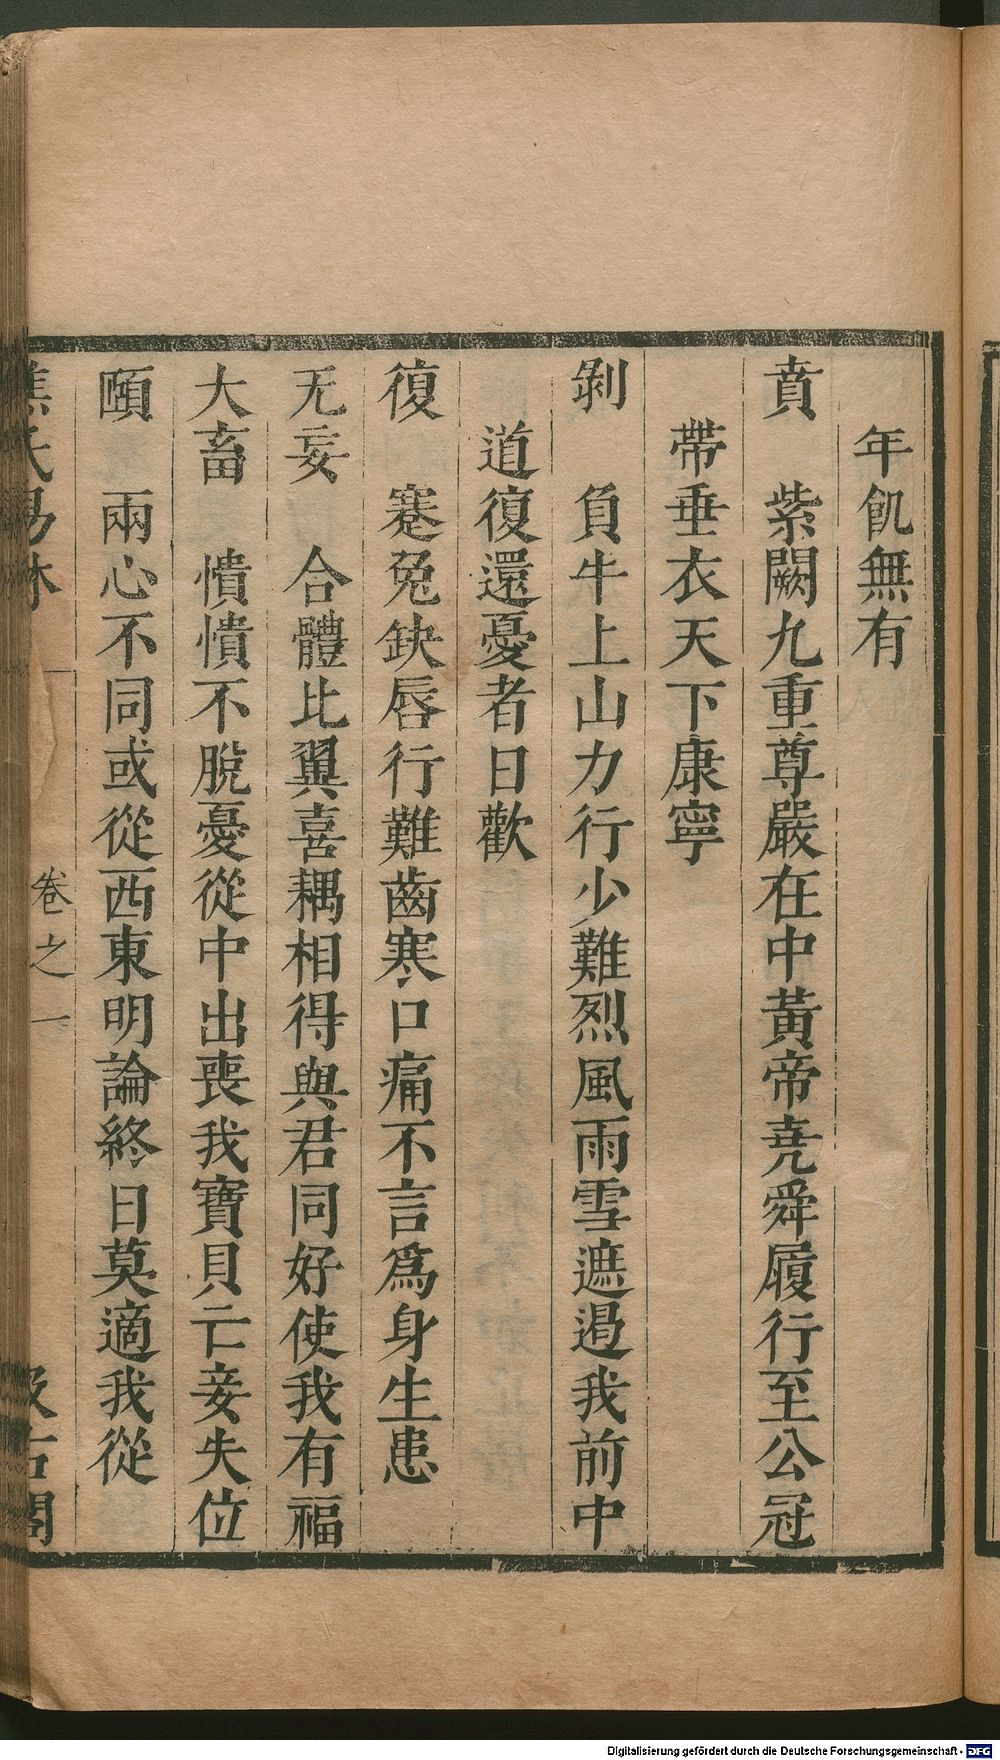 年飢無有
賁　紫闕九重尊嚴在中黃帝堯舜履行至公冠
帶垂衣天下康寧
剝　負牛上山力行少難烈風雨雪遮遏我前中
道復還憂者日歡
復　蹇兔缺唇行難齒寒口痛不言爲身生患
无妄　合體比翼喜耦相得與君同好使我有福
大畜　憒憒不脫憂從中出喪我寶貝亡妾失位
頤　兩心不同或從西東明論終日莫適我從
焦氏易林　卷之一　汲古閣
Digitalisierung gefördert durch die Deutsche Forschungsgemeinschaft - DFG